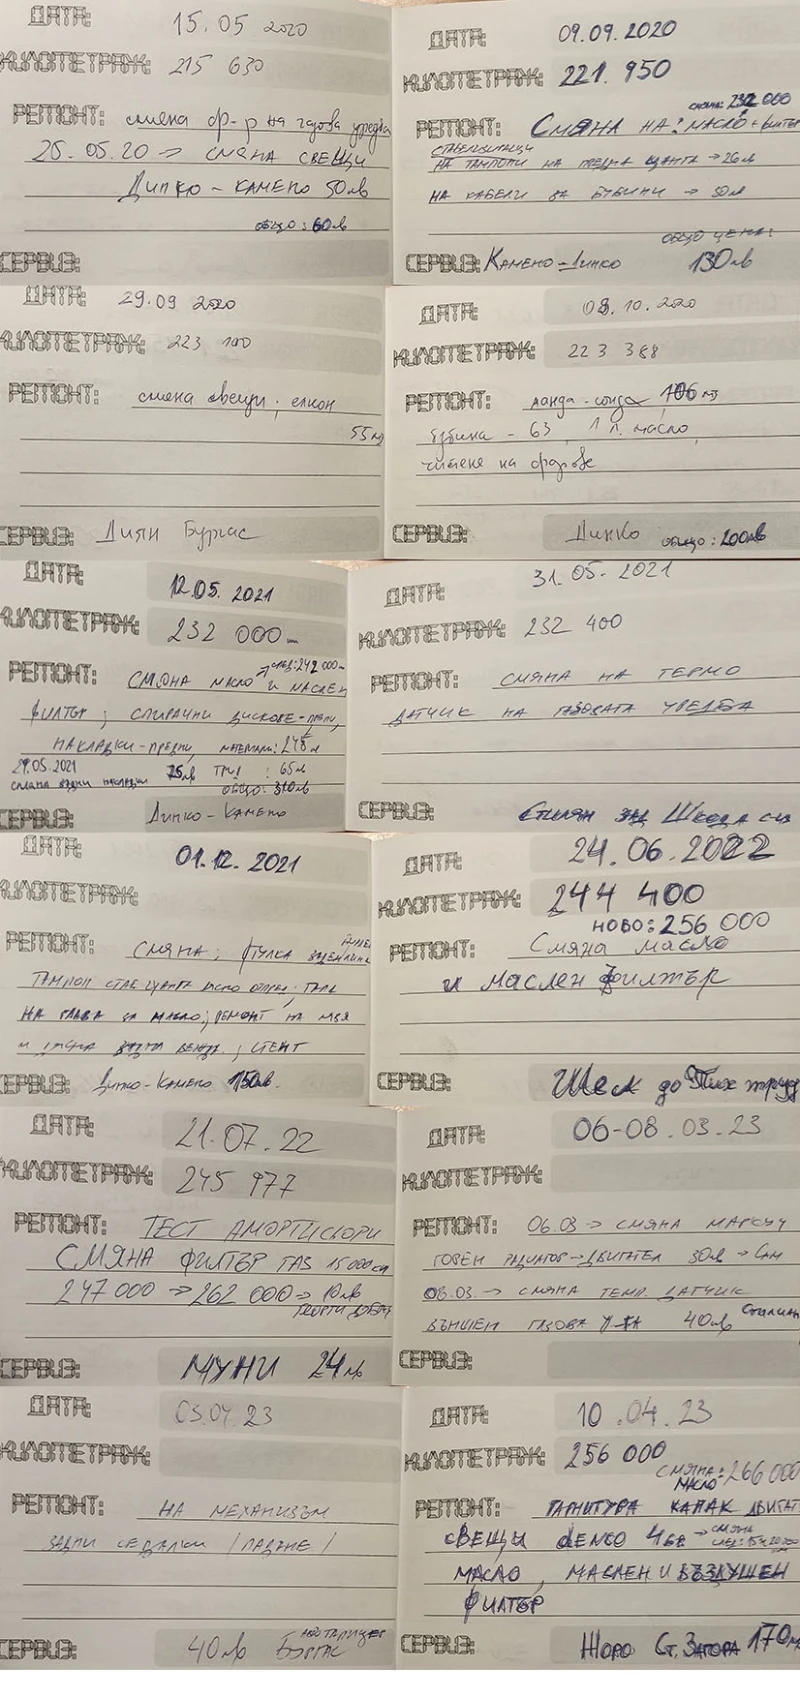 ДАТА: 15.05 2020
КИЛОМЕТРАЖ: 215 630
РЕМОНТ: смяна ф-р на газова уредба
25.05.20 → СМЯНА СВЕЩИ
ДИНКО - КАМЕНО 50лв
общо: 60лв
СЕРВИЗ:
ДАТА: 09.09.2020
КИЛОМЕТРАЖ: 221.950
смяна: 232 000
РЕМОНТ: СМЯНА НА: МАСЛО + ФИЛТЪР
СТАБЕЛИЗИРАЩИ
НА ТАМПОНИ НА ПРЕДНА ЩАНГА → 26лв
НА КАБЕЛИ ЗА БУБИНИ → 50лв
ОБЩО ЦЕНА:
СЕРВИЗ: КАМЕНО - ДИНКО 130лв
ДАТА: 29.09 2020
КИЛОМЕТРАЖ: 223 100
РЕМОНТ: смяна свещи;
55лв
СЕРВИЗ: Диян Бургас
ДАТА: 08.10.2020
КИЛОМЕТРАЖ: 223 388
РЕМОНТ: ланда-сонда 106лв
бубина - 63, 1 л. масло,
чистене на
СЕРВИЗ: Динко общо: 200лв
ДАТА: 12.05. 2021
КИЛОМЕТРАЖ: 232 000
→ след: 242 000
РЕМОНТ: СМЯНА МАСЛО И МАСЛЕН
ФИЛТЪР; СПИРАЧНИ ДИСКОВЕ-ПРЕДНИ,
НАКЛАДКИ-ПРЕДНИ, МАТЕРИАЛИ: 245лв
29.05.2021 ТРУД: 65лв
СМЯНА ЗАДНИ НАКЛАДКИ 75лв ОБЩО: 310лв
СЕРВИЗ: Динко - Камено
ДАТА: 31.05.2021
КИЛОМЕТРАЖ: 232 400
РЕМОНТ: СМЯНА НА ТЕРМО
ДАТЧИК НА ГАЗОВАТА УРЕДБА
СЕРВИЗ: Стилян зад Шкода
ДАТА: 01.12. 2021
КИЛОМЕТРАЖ:
РЕМОНТ: СМЯНА; ВТУЛКА
ТАМПОН СТАБ ЩАНГА ЛЯСО ОТПРЕД; ТАПА
НА ГЛАВА ЗА МАСЛО; РЕМОНТ НА
И СМЯНА ЗАДНА
СЕРВИЗ: Динко - Камено 150лв.
ДАТА: 24.06.2022
КИЛОМЕТРАЖ: 244 400
НОВО: 256 000
РЕМОНТ: Смяна масло
и маслен филтър
СЕРВИЗ: Шел до
ДАТА: 21.07.22
КИЛОМЕТРАЖ: 245 977
РЕМОНТ: ТЕСТ АМОРТИСЬОРИ
СМЯНА ФИЛТЪР ГАЗ 15 000км
247 000 → 262 000 → 10лв
СЕРВИЗ: МУНИ 24лв
ДАТА: 06-08.03.23
КИЛОМЕТРАЖ:
РЕМОНТ: 06.03 → СМЯНА МАРКУЧ
ГОРЕН РАДИАТОР → ДВИГАТЕЛ 30лв → Сам
08.03. → СМЯНА ТЕМП. ДАТЧИК
ВЪНШЕН ГАЗОВА У-БА 40лв Стилиян
СЕРВИЗ:
ДАТА: 03.04.23
КИЛОМЕТРАЖ:
РЕМОНТ: НА МЕХАНИЗЪМ
ЗАДНИ СЕДАЛКИ /ПАДАНЕ/
СЕРВИЗ: 40лв БУРГАС
ДАТА: 10.04.23
КИЛОМЕТРАЖ: 256 000
СМЯНА: 266 000
МАСЛО
РЕМОНТ: ГАРНИТУРА КАПАК ДВИГАТ
СВЕЩИ DENSO 4бр → СМЯНА
МАСЛО, МАСЛЕН И ВЪЗДУШЕН
ФИЛТЪР
СЕРВИЗ: Жоро Ст. ЗАГОРА 170лв